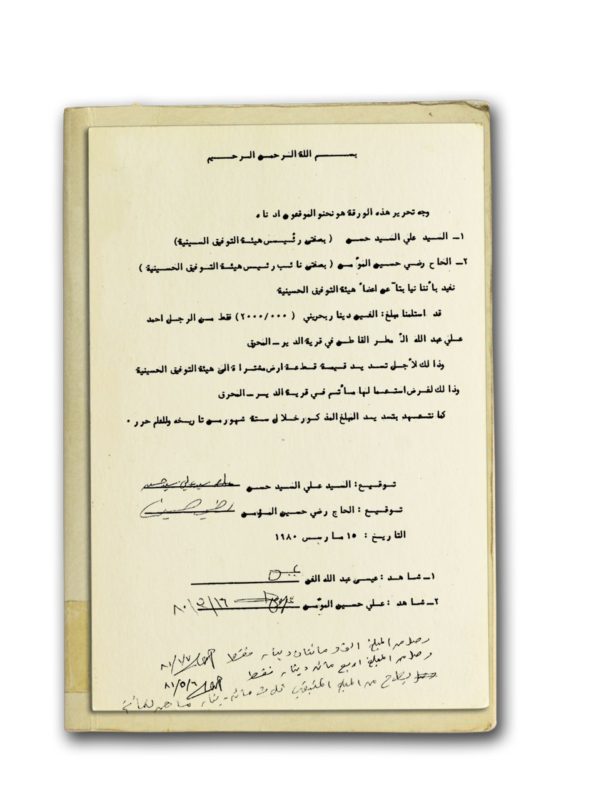 بسم الله الرحمن الرحيم
وجه تحرير هذه الورقة هو نحن الموقعون ادناه
١ــ السيد علي السيد حسن ( بصفتي رئيس هيئة التوفيق الحسينية)
٢ــ الحاج رضي حسين المؤمن ( بصفتي نائب رئيس هيئة التوفيق الحسينية )
نفيد بأننا نيابتاً عن اعضاء هيئة التوفيق الحسينية
قد استلمنا مبلغ: الفين دينار بحريني (٢٠٠٠/٠٠٠) فقط من الرجل احمد
علي عبد الله المطر القاطن في قرية الدير ــ المحرق
وذالك لأجل تسديد قيمة قطعة ارض مشتراة الى هيئة التوفيق الحسينية
وذالك لغرض استعمالها مأتم في قرية الدير ــ المحرق
كما نتعهد بتسديد المبلغ المذكور خلال ستة شهور من تاريخه وللعلم حرر ٠
توقيع: السيد علي السيد حسن
توقيع: الحاج رضي حسين المؤمن
التاريخ : ١٥ مارس ١٩٨٠
١ــ شاهد : عيسى عبد الله
٢ــ شاهد : علي حسين المؤمن ٨٠/٣/١٦
وصل من المبلغ الف و مائتان دينار فقط ٨١/٧/٧
وصل من المبلغ اربع مائة دينار فقط ٨١/٥/٦
من المبلغ المتبقي ثلاث مائة دينار